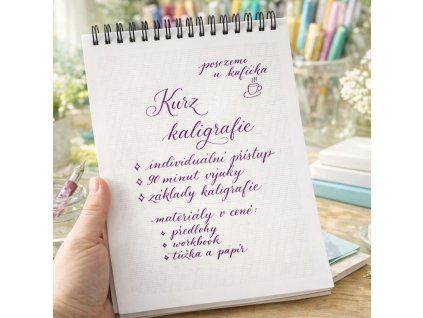 posezení
u kafíčka
Kurz
kaligrafie
individuální přístup
90 minut výuky
základy kaligrafie
materiály v ceně:
předlohy
workbook
tužka a papír